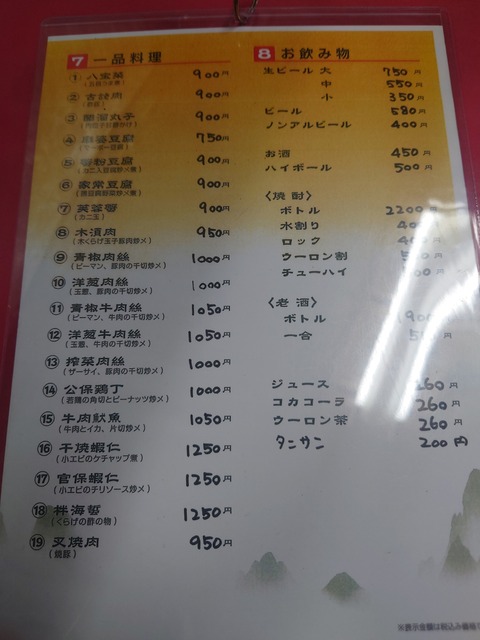 7 一品料理
① 八宝菜 900円
② 古技肉 900円
③ 900円
④ 麻婆豆腐 750円
(マーボー豆腐)
⑤ 蟹粉豆腐 900円
⑥ 家常豆腐 900円
⑦ 芙蓉蟹 900円
(カニ玉)
⑧ 木須肉 950円
(木くらげ玉子豚肉炒メ)
⑨ 青椒肉絲 1000円
(ピーマン、豚肉の千切炒メ)
⑩ 洋葱肉絲 1000円
(玉葱、豚肉の千切炒メ)
⑪ 青椒牛肉絲 1050円
(ピーマン、牛肉の千切炒メ)
⑫ 洋葱牛肉絲 1050円
(玉葱、牛肉の千切炒メ)
⑬ 搾菜肉絲 1000円
(ザーサイ、豚肉の千切炒メ)
⑭ 公保鶏丁 1000円
(若鶏の角切とピーナッツ炒メ)
⑮ 牛肉魷魚 1050円
(牛肉とイカ、片切炒メ)
⑯ 干焼蝦仁 1250円
(小エビのケチャップ煮)
⑰ 官保蝦仁 1250円
(小エビのチリソース炒メ)
⑱ 拌海蜇 1250円
(くらげの酢の物)
⑲ 叉焼肉 950円
(焼豚)
8 お飲み物
生ビール 大 750円
中 550円
小 350円
ビール 580円
ノンアルビール 400円
お酒 450円
ハイボール 500円
〈焼酎〉
ボトル 2200円
水割り 円
ロック 円
ウーロン割 円
チューハイ 円
〈老酒〉
ボトル 円
一合 円
ジュース 260円
コカコーラ 260円
ウーロン茶 260円
タンサン 200円
※表示金額は税込み価格で